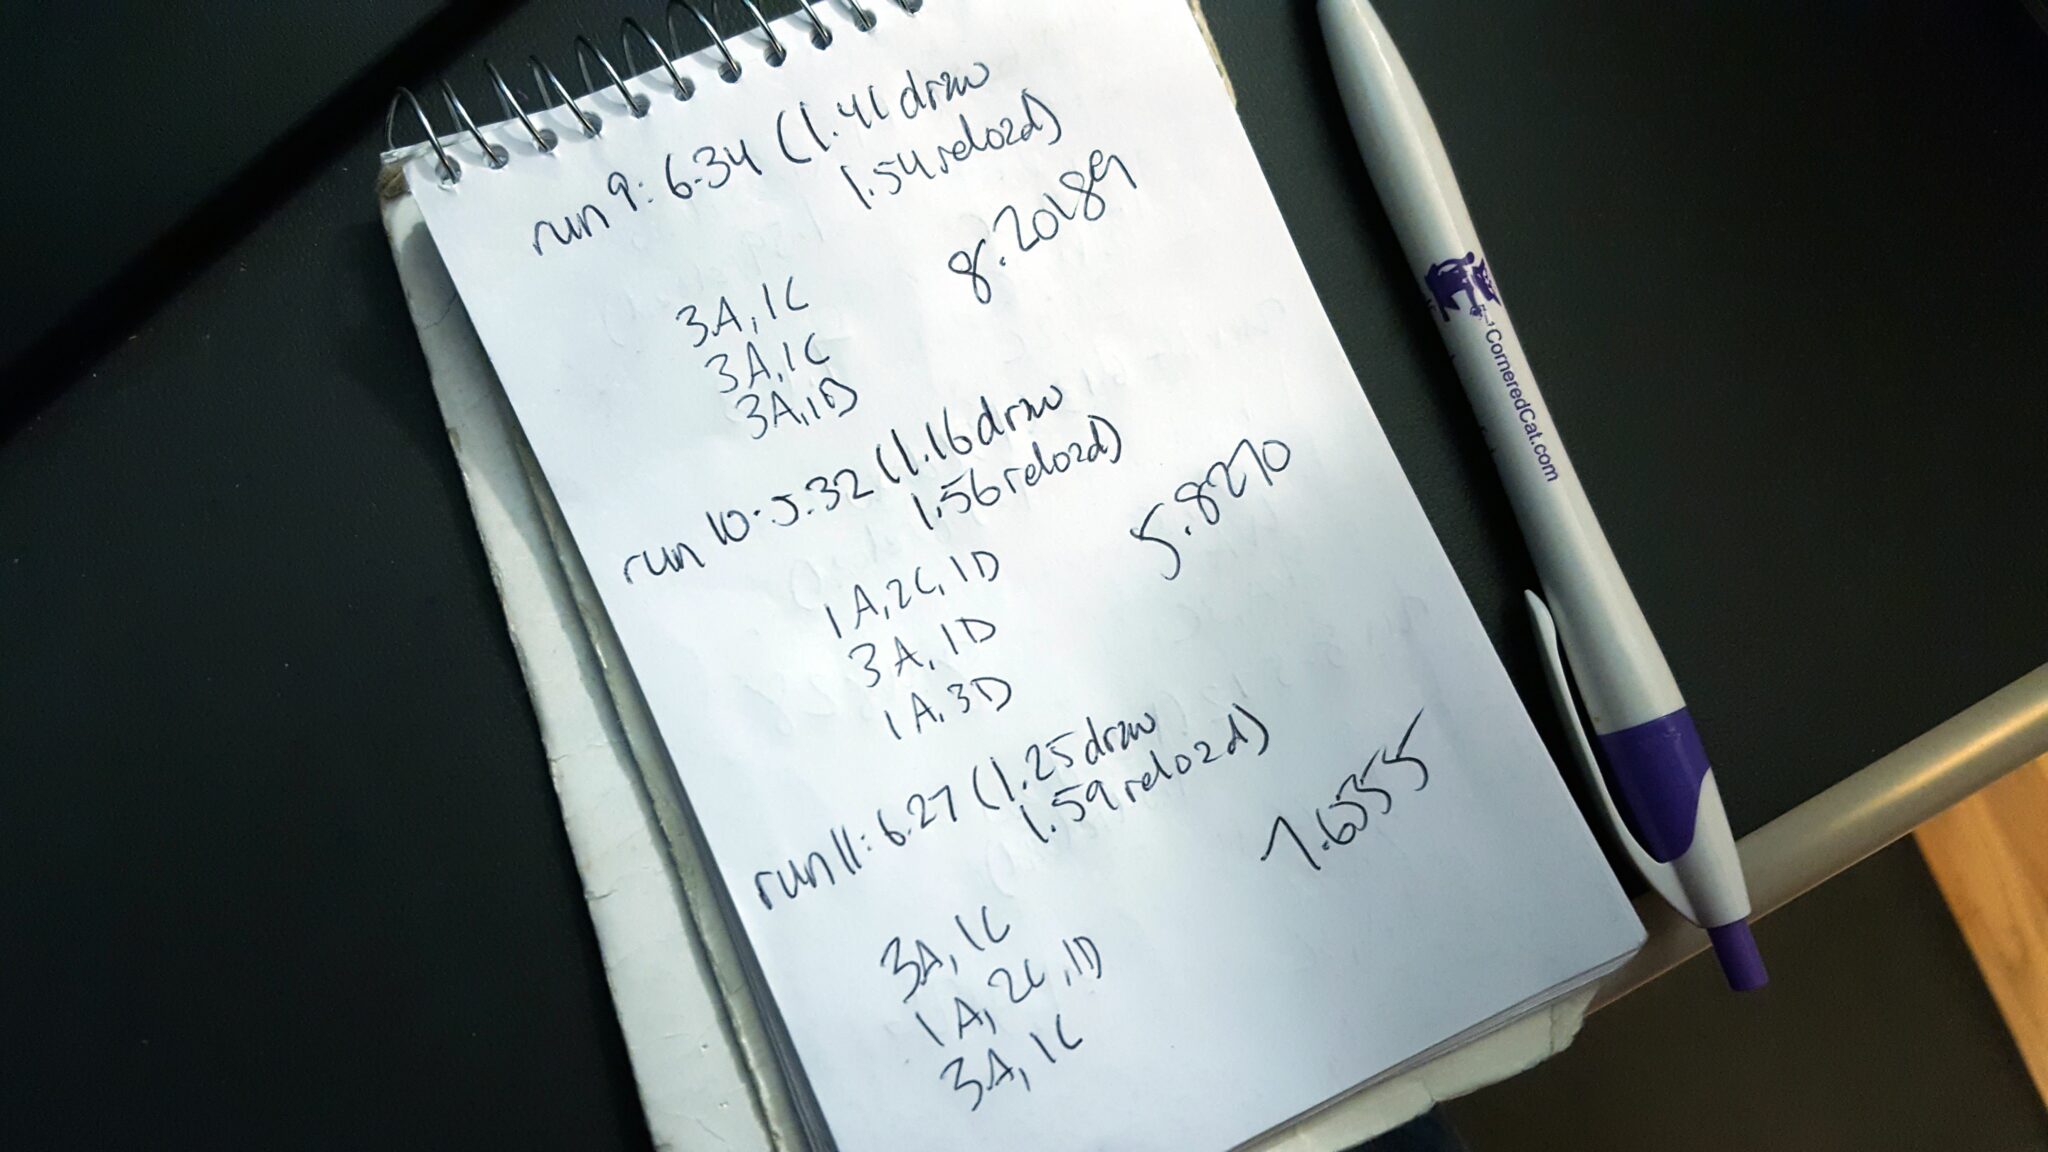 run 9: 6.34 (1.41 draw
1.54 reload)
8.20189
3A, 1C
3A, 1C
3A, 1D
run 10: 5.32 (1.16 draw
1.56 reload)
5.8270
1A, 2C, 1D
3A, 1D
1A, 3D
run 11: 6.27 (1.25 draw
1.59 reload)
7.6555
3A, 1C
1A, 2C, 1D
3A, 1C
CorneredCat.com